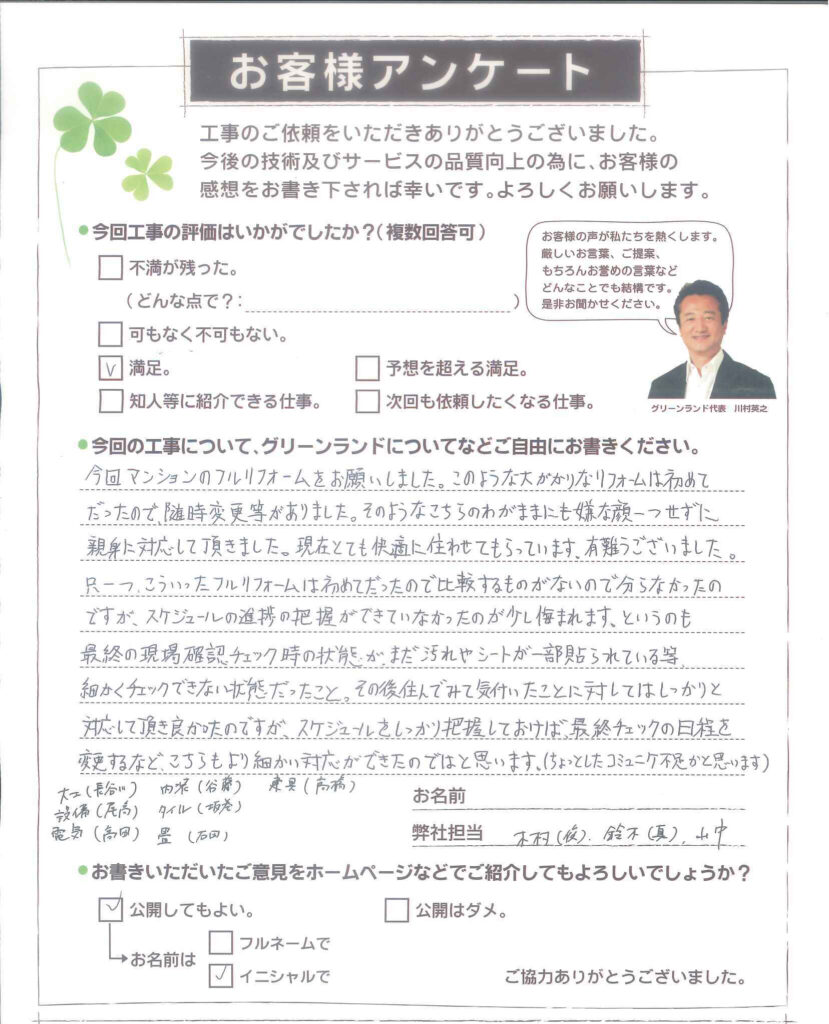 お客様アンケート
工事のご依頼をいただきありがとうございました。
今後の技術及びサービスの品質向上の為に、お客様の
感想をお書き下されば幸いです。よろしくお願いします。
●今回工事の評価はいかがでしたか？(複数回答可)
お客様の声が私たちを熱くします。
厳しいお言葉、ご提案、
もちろんお誉めの言葉など
どんなことでも結構です。
是非お聞かせください。
グリーンランド代表 川村英之
不満が残った。
(どんな点で？: )
可もなく不可もない。
満足。 予想を超える満足。
知人等に紹介できる仕事。 次回も依頼したくなる仕事。
●今回の工事について、グリーンランドについてなどご自由にお書きください。
今回マンションのフルリフォームをお願いしました。このような大がかりなリフォームは初めて
だったので、随時変更等がありました。そのようなこちらのわがままにも嫌な顔一つせずに
親身に対応して頂きました。現在とても快適に住わせてもらっています、有難うございました。
只一つ、こういったフルリフォームは初めてだったので比較するものがないので分らなかったの
ですが、スケジュールの進捗の把握ができていなかったのが少し悔まれます、というのも
最終の現場確認チェック時の状態が、まだ汚れやシートが一部貼られている等、
細かくチェックできない状態だったこと。その後住んでみて気付いたことに対してはしっかりと
対応して頂き良かったのですが、スケジュールをしっかり把握しておけば、最終チェックの日程を
変更するなど、こちらもより細かい対応ができたのではと思います。(ちょっとしたコミュニケ不足かと思います)
大工(長谷川) 内装(谷藤) 建具(高橋)
設備(尾高) タイル
電気(高田) 畳(石田)
お名前
弊社担当 木村(俊)、鈴木(真)、山中
●お書きいただいたご意見をホームページなどでご紹介してもよろしいでしょうか？
公開してもよい。 公開はダメ。
お名前は フルネームで
イニシャルで
ご協力ありがとうございました。